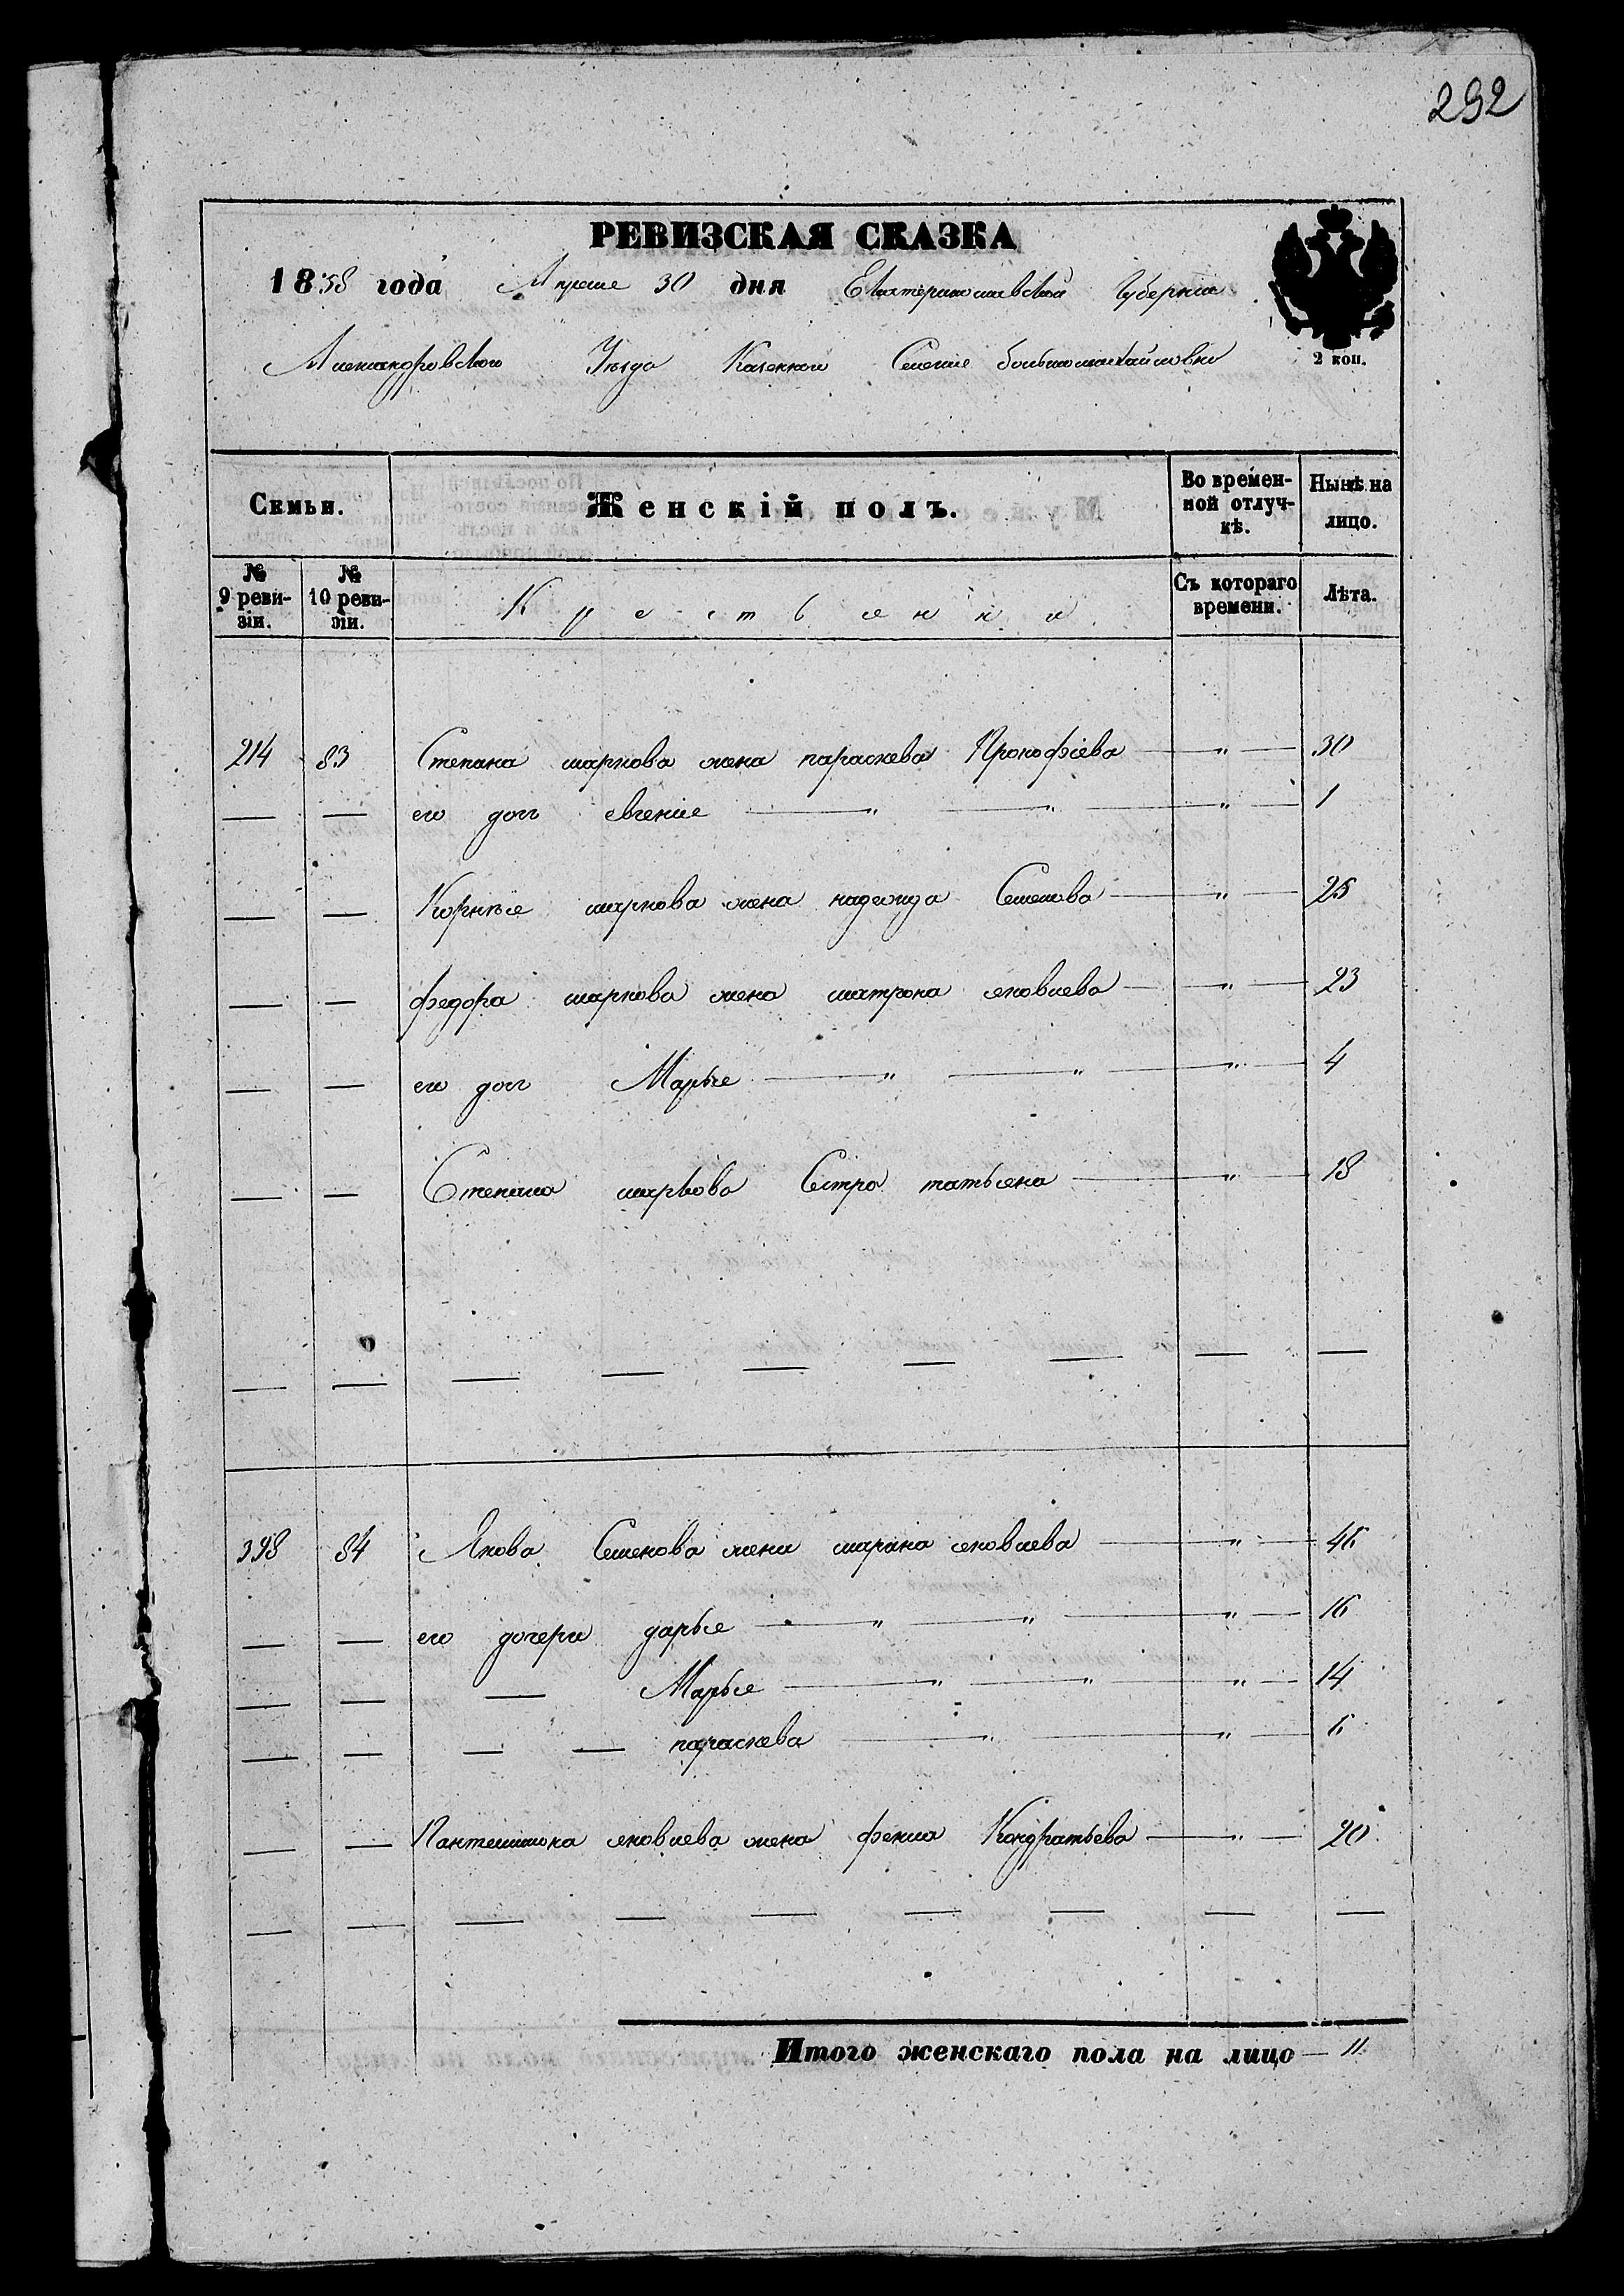 292
РЕВИЗСКАЯ СКАЗКА
1858 года Апреля 30 дня Екатеринославской Губернии
2 коп.
Александровского Уезда Казенного Селения большомихайловки
Семьи. Женскій полъ. Во времен-ной отлуч-кѣ. Нынѣ на лицо.
№ 9 реви-зіи. № 10 реви-зіи. Крестьянки Съ котораго времени. Лѣта.
214 83 Степана маркова жена параскева Прокофіева — " — 30
— — его доч евгения — " — " — " — 1
— — Корнѣя маркова жена надежда Семенова — " — 25
— — федора маркова жена матрона яковлева — " — 23
— — его доч Марья — " — " — " — 4
— — Степана маркова Сестра татьяна — " — 18
— — — — — — — — —
398 84 Якова Семенова жена марина яковлева — " — 46
— — его дочери дарья — " — " — " — 16
— — — Марья — " — " — " — 14
— — — — параскева — " — " — 6
— — Пантелимона яковлева жена фекла Кондратьева — " — 20
— — — — — — — — —
Итого женскаго пола на лицо — 11